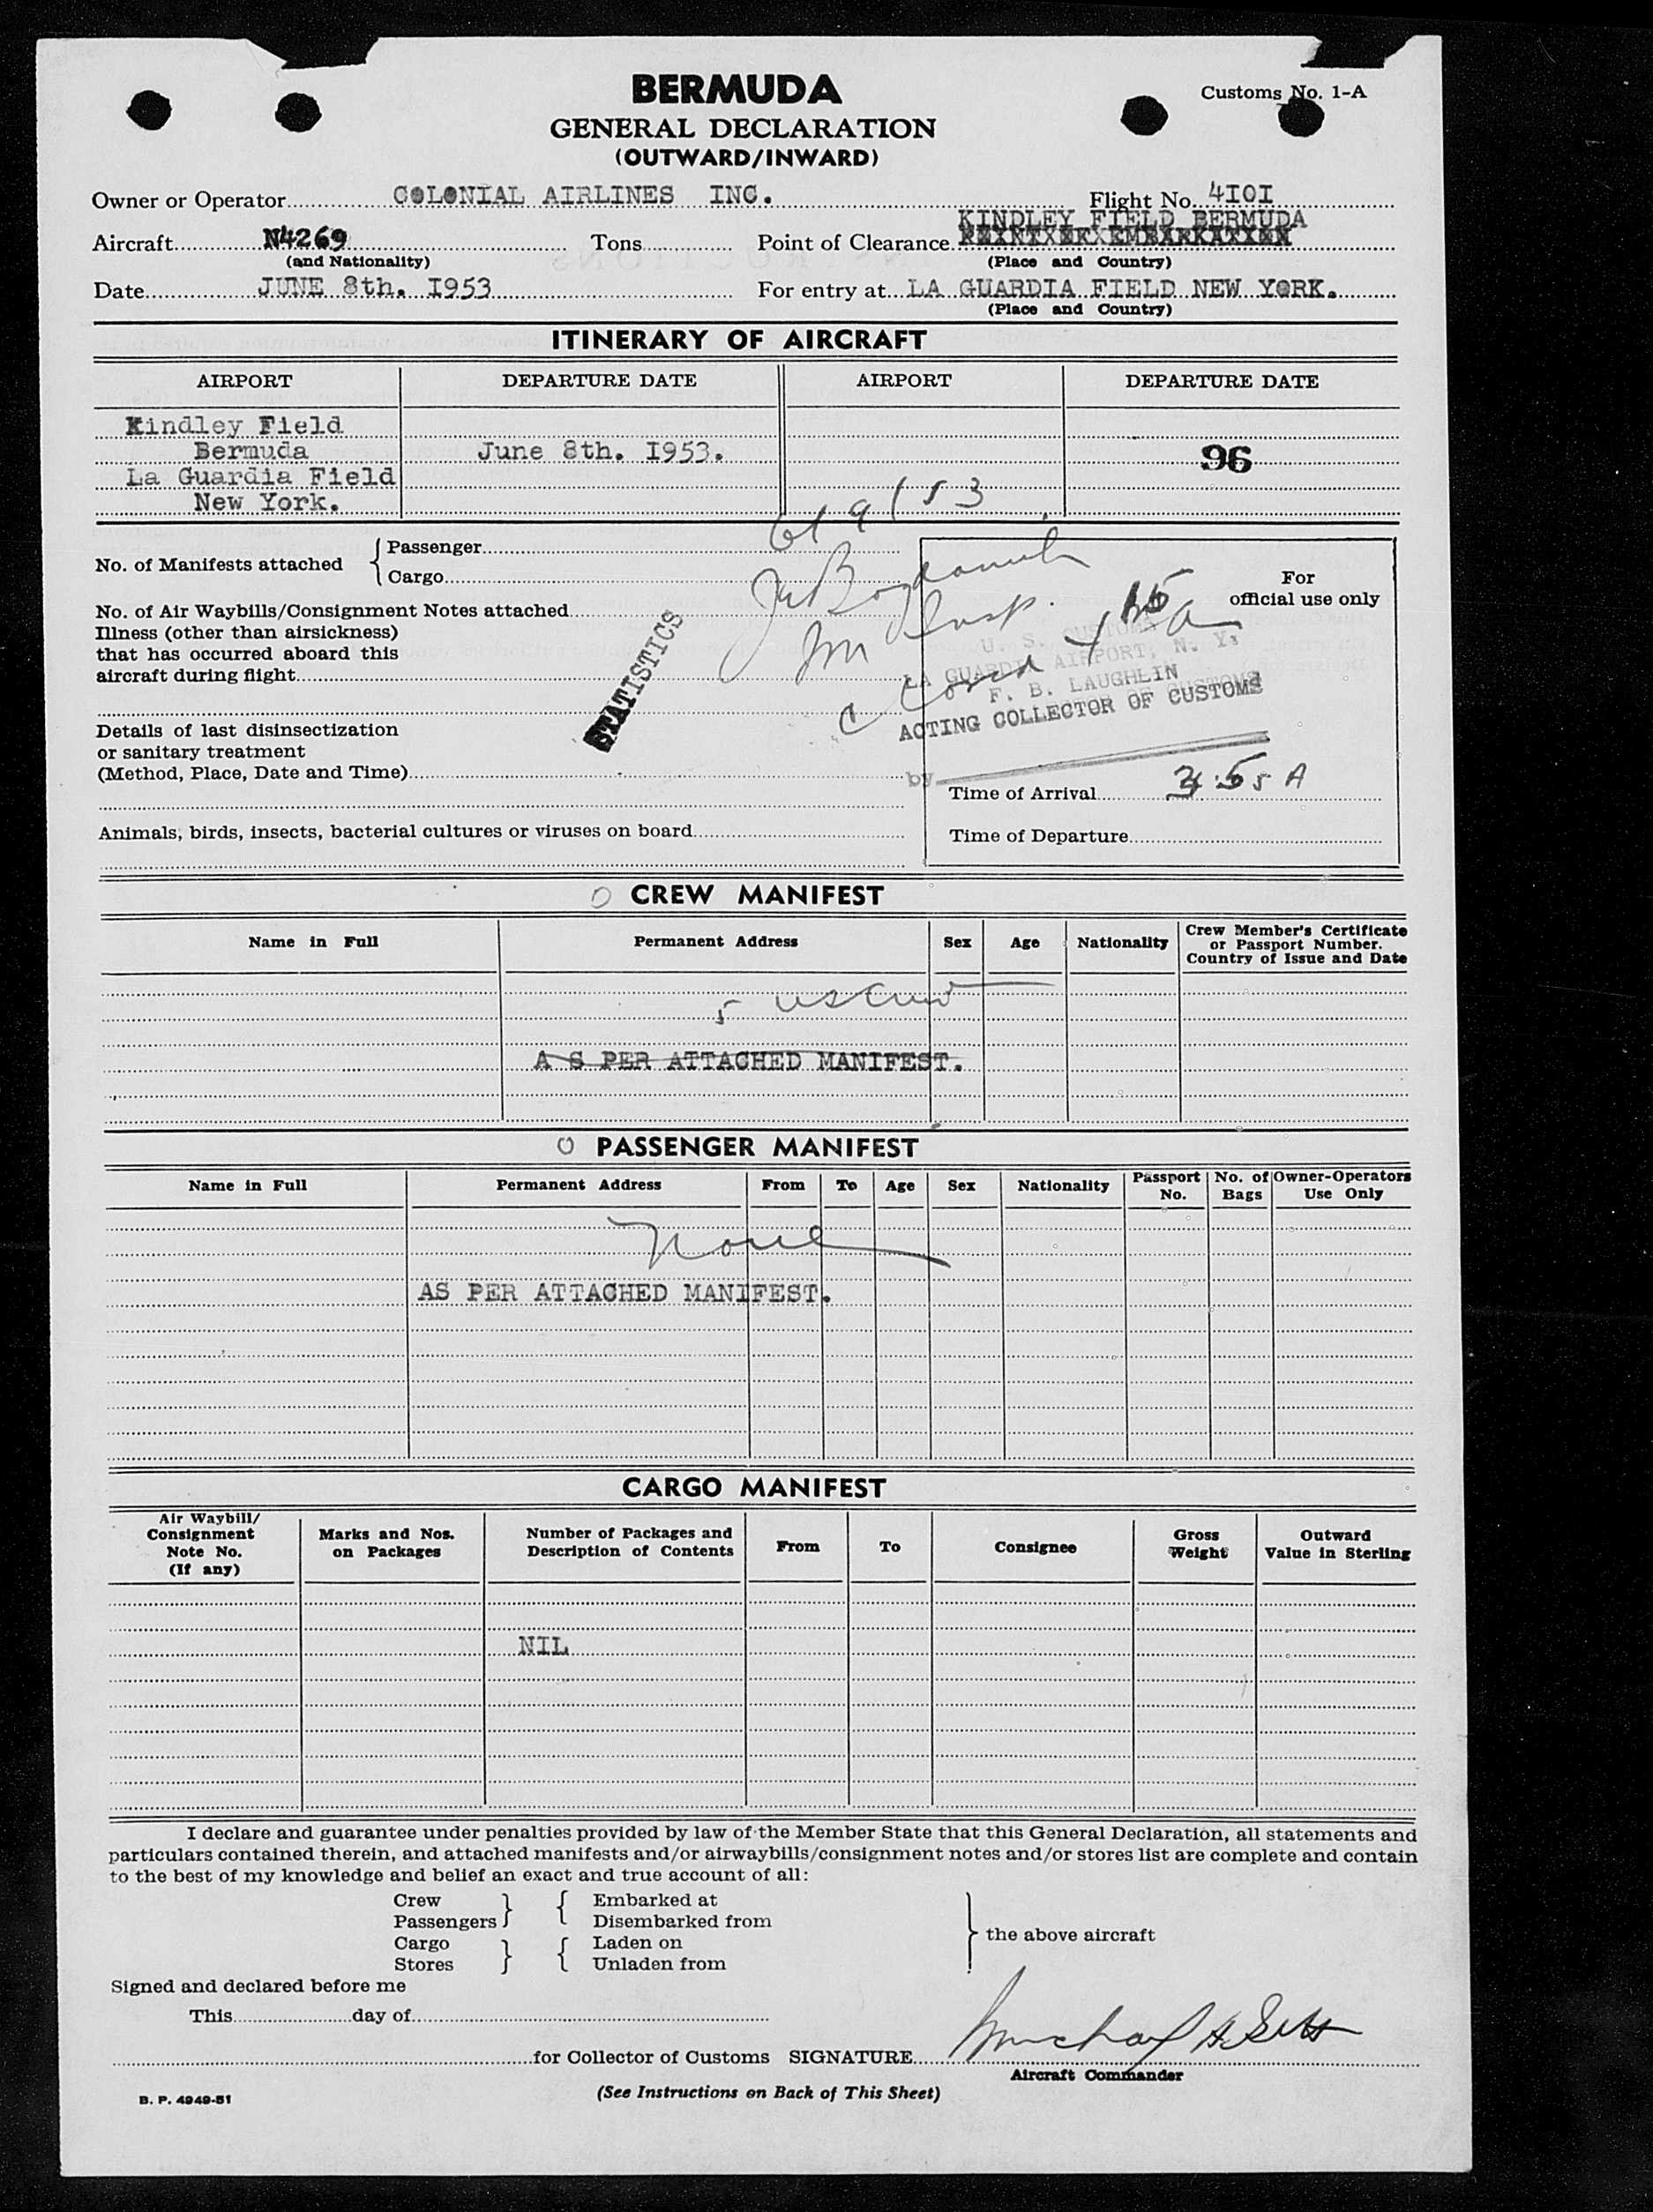 BERMUDA
Customs No. 1-A
GENERAL DECLARATION
(OUTWARD/INWARD)
Owner or Operator COLONIAL AIRLINES INC. Flight No. 4IOI
KINDLEY FIELD BERMUDA
Aircraft N4269 Tons Point of Clearance
(and Nationality) (Place and Country)
Date JUNE 8th. I953 For entry at LA GUARDIA FIELD NEW YORK.
(Place and Country)
ITINERARY OF AIRCRAFT
AIRPORT DEPARTURE DATE AIRPORT DEPARTURE DATE
Kindley Field
Bermuda June 8th. I953. 96
La Guardia Field
New York.
6/9/53
No. of Manifests attached { Passenger
Cargo
For
official use only
No. of Air Waybills/Consignment Notes attached
Illness (other than airsickness)
that has occurred aboard this
aircraft during flight
STATISTICS
U. S. CUSTOMS
LA GUARDIA AIRPORT, N. Y.
F. B. LAUGHLIN
ACTING COLLECTOR OF CUSTOMS
by
Details of last disinsectization
or sanitary treatment
(Method, Place, Date and Time)
Time of Arrival
Animals, birds, insects, bacterial cultures or viruses on board
Time of Departure
CREW MANIFEST
Name in Full Permanent Address Sex Age Nationality Crew Member's Certificate
or Passport Number.
Country of Issue and Date
5 US Crew
A S PER ATTACHED MANIFEST.
PASSENGER MANIFEST
Name in Full Permanent Address From To Age Sex Nationality Passport No. No. of Bags Owner-Operators Use Only
None
AS PER ATTACHED MANIFEST.
CARGO MANIFEST
Air Waybill/
Consignment
Note No.
(If any)
Marks and Nos.
on Packages
Number of Packages and
Description of Contents
From To Consignee
Gross
Weight
Outward
Value in Sterling
NIL
I declare and guarantee under penalties provided by law of the Member State that this General Declaration, all statements and
particulars contained therein, and attached manifests and/or airwaybills/consignment notes and/or stores list are complete and contain
to the best of my knowledge and belief an exact and true account of all:
Crew } { Embarked at
Passengers Disembarked from
Cargo } { Laden on
Stores Unladen from
} the above aircraft
Signed and declared before me
This day of
for Collector of Customs SIGNATURE
Aircraft Commander
(See Instructions on Back of This Sheet)
B. P. 4949-51